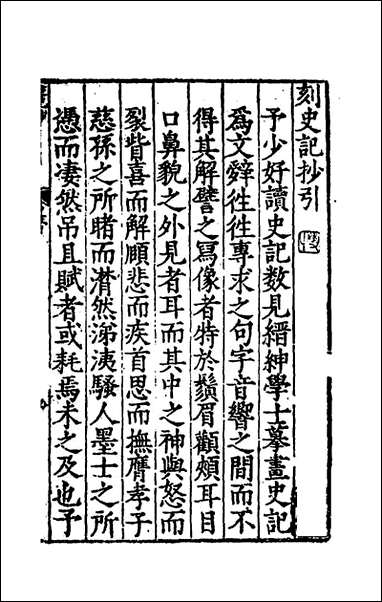 刻史記抄引
予少好讀史記數見縉紳學士摹畫史記
爲文辭徃徃專求之句字音響之間而不
得其解譬之寫像者特於鬚眉顴頰耳目
口鼻貌之外見者耳而其中之神與怒而
裂眥喜而解頤悲而疾首思而撫膺孝子
慈孫之所睹而潸然涕洟騷人墨士之所
憑而凄然吊且賦者或耗焉未之及也予